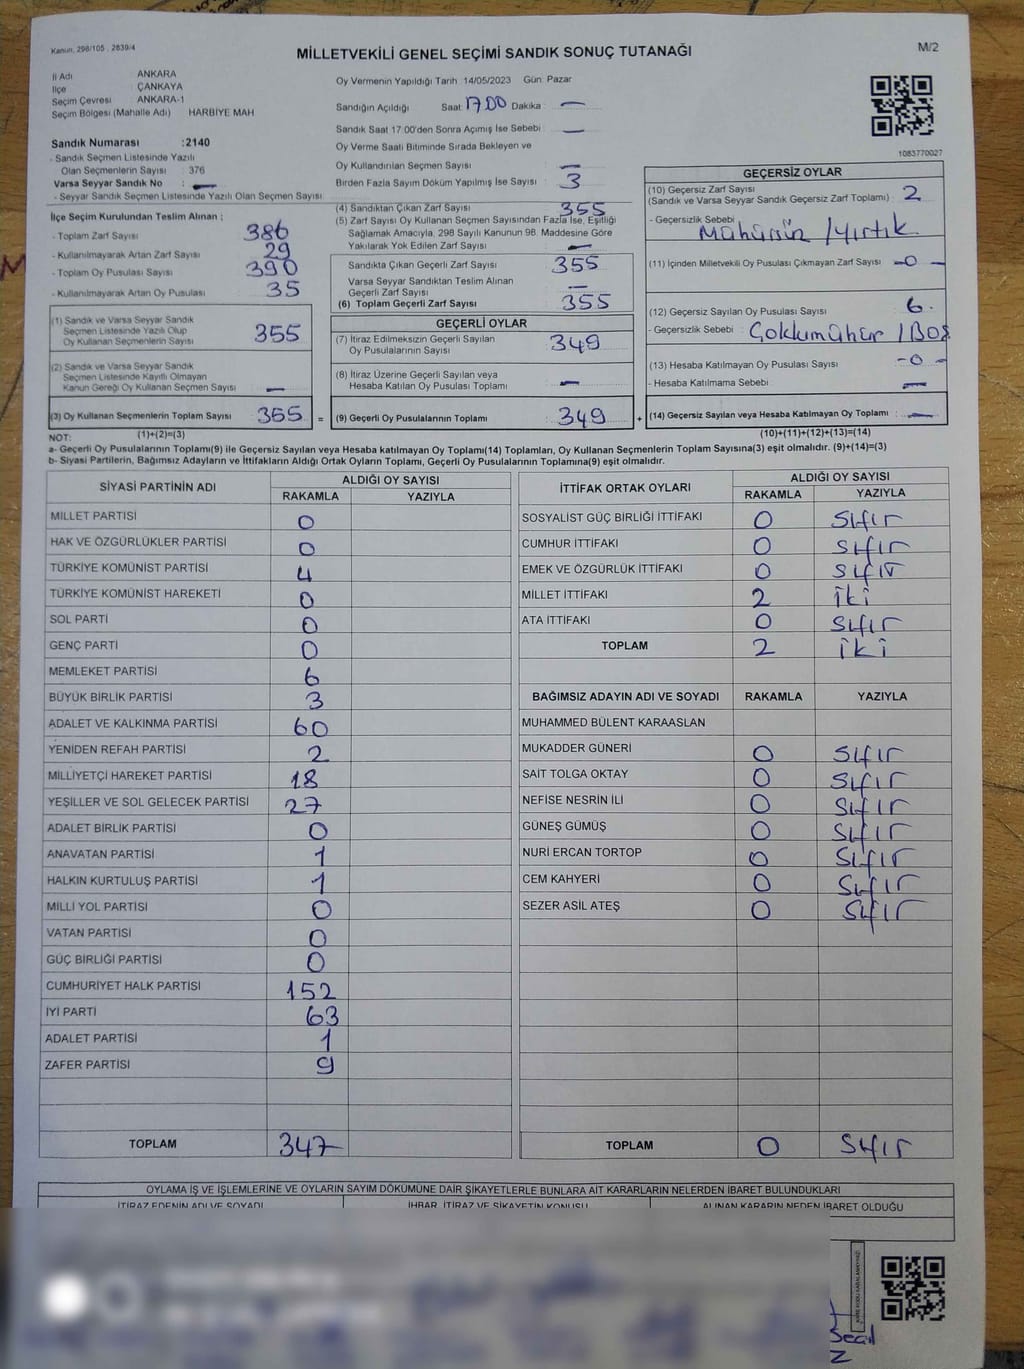 Kanun, 298/105 , 2839/4
MİLLETVEKİLİ GENEL SEÇİMİ SANDIK SONUÇ TUTANAĞI
M/2
İl Adı ANKARA
İlçe ÇANKAYA
Seçim Çevresi ANKARA-1
Seçim Bölgesi (Mahalle Adı) HARBİYE MAH
Sandık Numarası :2140
- Sandık Seçmen Listesinde Yazılı
Olan Seçmenlerin Sayısı : 376
Varsa Seyyar Sandık No : —
- Seyyar Sandık Seçmen Listesinde Yazılı Olan Seçmen Sayısı
İlçe Seçim Kurulundan Teslim Alınan ;
- Toplam Zarf Sayısı 386
- Kullanılmayarak Artan Zarf Sayısı 29
- Toplam Oy Pusulası Sayısı 390
- Kullanılmayarak Artan Oy Pusulası 35
(1) Sandık ve Varsa Seyyar Sandık
Seçmen Listesinde Yazılı Olup
Oy Kullanan Seçmenlerin Sayısı 355
(2) Sandık ve Varsa Seyyar Sandık
Seçmen Listesinde Kayıtlı Olmayan
Kanun Gereği Oy Kullanan Seçmen Sayısı —
(3) Oy Kullanan Seçmenlerin Toplam Sayısı 355 =
(1)+(2)=(3)
Oy Vermenin Yapıldığı Tarih 14/05/2023 Gün: Pazar
Sandığın Açıldığı Saat: 17.00 Dakika : —
Sandık Saat 17:00'den Sonra Açımış İse Sebebi : —
Oy Verme Saati Bitiminde Sırada Bekleyen ve
Oy Kullandırılan Seçmen Sayısı : —
Birden Fazla Sayım Döküm Yapılmış İse Sayısı : 3
(4) Sandıktan Çıkan Zarf Sayısı 355
(5) Zarf Sayısı Oy Kullanan Seçmen Sayısından Fazla İse, Eşitliği
Sağlamak Amacıyla, 298 Sayılı Kanunun 98. Maddesine Göre
Yakılarak Yok Edilen Zarf Sayısı —
Sandıkta Çıkan Geçerli Zarf Sayısı 355
Varsa Seyyar Sandıktan Teslim Alınan
Geçerli Zarf Sayısı —
(6) Toplam Geçerli Zarf Sayısı 355
GEÇERLİ OYLAR
(7) İtiraz Edilmeksizin Geçerli Sayılan
Oy Pusulalarının Sayısı 349
(8) İtiraz Üzerine Geçerli Sayılan veya
Hesaba Katılan Oy Pusulası Toplamı —
(9) Geçerli Oy Pusulalarının Toplamı 349 +
1083770027
GEÇERSİZ OYLAR
(10) Geçersiz Zarf Sayısı
(Sandık ve Varsa Seyyar Sandık Geçersiz Zarf Toplamı) : 2
- Geçersizlik Sebebi :
Mühürsün / yırtık
(11) İçinden Milletvekili Oy Pusulası Çıkmayan Zarf Sayısı : —0—
(12) Geçersiz Sayılan Oy Pusulası Sayısı : 6.
- Geçersizlik Sebebi : Çoklumühür / Boş
(13) Hesaba Katılmayan Oy Sayısı : —0—
- Hesaba Katılmama Sebebi : —
(14) Geçersiz Sayılan veya Hesaba Katılmayan Oy Toplamı : —
(10)+(11)+(12)+(13)=(14)
NOT:
a- Geçerli Oy Pusulalarının Toplamı(9) ile Geçersiz Sayılan veya Hesaba katılmayan Oy Toplamı(14) Toplamları, Oy Kullanan Seçmenlerin Toplam Sayısına(3) eşit olmalıdır. (9)+(14)=(3)
b- Siyasi Partilerin, Bağımsız Adayların ve İttifakların Aldığı Ortak Oyların Toplamı, Geçerli Oy Pusulalarının Toplamına(9) eşit olmalıdır.
SİYASİ PARTİNİN ADI ALDIĞI OY SAYISI
RAKAMLA YAZIYLA
MİLLET PARTİSİ 0
HAK VE ÖZGÜRLÜKLER PARTİSİ 0
TÜRKİYE KOMÜNİST PARTİSİ 4
TÜRKİYE KOMÜNİST HAREKETİ 0
SOL PARTİ 0
GENÇ PARTİ 0
MEMLEKET PARTİSİ 6
BÜYÜK BİRLİK PARTİSİ 3
ADALET VE KALKINMA PARTİSİ 60
YENİDEN REFAH PARTİSİ 2
MİLLİYETÇİ HAREKET PARTİSİ 18
YEŞİLLER VE SOL GELECEK PARTİSİ 27
ADALET BİRLİK PARTİSİ 0
ANAVATAN PARTİSİ 1
HALKIN KURTULUŞ PARTİSİ 1
MİLLİ YOL PARTİSİ 0
VATAN PARTİSİ 0
GÜÇ BİRLİĞİ PARTİSİ 0
CUMHURİYET HALK PARTİSİ 152
İYİ PARTİ 63
ADALET PARTİSİ 1
ZAFER PARTİSİ 9
TOPLAM 347
İTTİFAK ORTAK OYLARI ALDIĞI OY SAYISI
RAKAMLA YAZIYLA
SOSYALİST GÜÇ BİRLİĞİ İTTİFAKI 0 Sıfır
CUMHUR İTTİFAKI 0 Sıfır
EMEK VE ÖZGÜRLÜK İTTİFAKI 0 Sıfır
MİLLET İTTİFAKI 2 iki
ATA İTTİFAKI 0 Sıfır
TOPLAM 2 iki
BAĞIMSIZ ADAYIN ADI VE SOYADI RAKAMLA YAZIYLA
MUHAMMED BÜLENT KARAASLAN
MUKADDER GÜNERİ 0 Sıfır
SAİT TOLGA OKTAY 0 Sıfır
NEFİSE NESRİN İLİ 0 Sıfır
GÜNEŞ GÜMÜŞ 0 Sıfır
NURİ ERCAN TORTOP 0 Sıfır
CEM KAHYERİ 0 Sıfır
SEZER ASİL ATEŞ 0 Sıfır
TOPLAM 0 Sıfır
OYLAMA İŞ VE İŞLEMLERİNE VE OYLARIN SAYIM DÖKÜMÜNE DAİR ŞİKAYETLERLE BUNLARA AİT KARARLARIN NELERDEN İBARET BULUNDUKLARI
İTİRAZ EDENİN ADI VE SOYADI İHBAR, İTİRAZ VE ŞİKAYETİN KONUSU ALINAN KARARIN NEDEN İBARET OLDUĞU